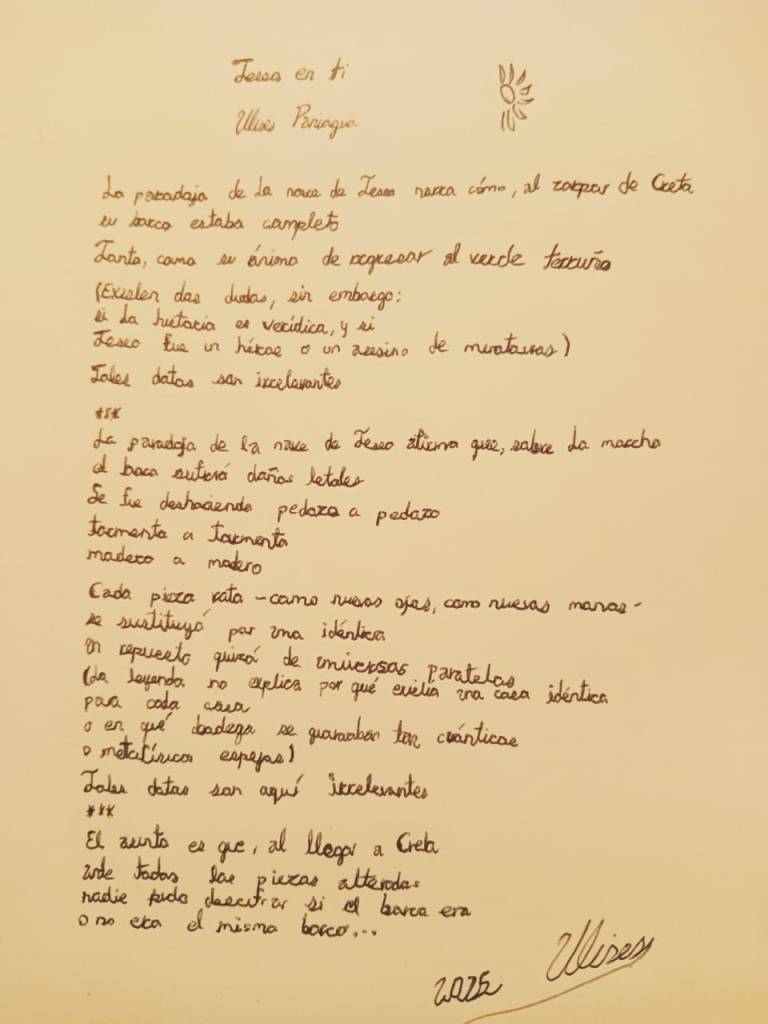 Teseo en ti
Ulises Paniagua
La paradoja de la nave de Teseo narra cómo, al zarpar de Creta
su barco estaba completo
Tanto, como su ánimo de regresar al verde terruño
(Existen dos dudas, sin embargo:
si la historia es verídica, y si
Teseo fue un héroe o un asesino de minotauros)
Tales datos son irrelevantes
***
La paradoja de la nave de Teseo afirma que, sobre la marcha
el barco sufrirá daños letales
Se fue deshaciendo pedazo a pedazo
tormenta a tormenta
madero a madero
Cada pieza rota - como nuevos ojos, como nuevas manos -
se sustituyó por una idéntica
un repuesto quizá de universos paralelos
(La leyenda no explica por qué existía una cosa idéntica
para cada cosa
o en qué bodega se guardaban tan cuánticos
o metafísicos espejos)
Tales datos son aquí irrelevantes
***
El asunto es que, al llegar a Creta
ante todas las piezas alteradas
nadie pudo descifrar si el barco era
o no era el mismo barco...
2025 Ulises